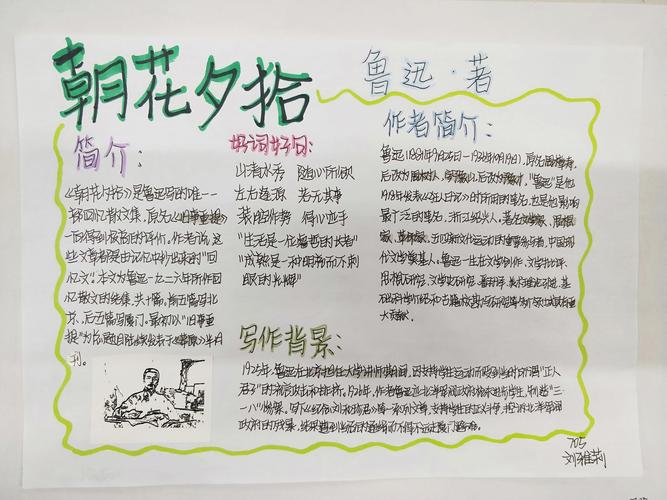 朝花夕拾
鲁迅·著
简介:
《朝花夕拾》是鲁迅写的唯一一
部回忆散文集,原名《旧事重提》
一面得到极高的评价。作者说,这
些文章都是"从记忆中抄出来的""回
忆文"。本文为鲁迅一九二六年所作回
忆散文的结集,共十篇,前五篇写北
京,后五篇写厦门。最初以"旧事重
提"为总题目陆续发表于《莽原》半月
刊。
好词好句:
山清水秀 随心所欲
左右逢源 若无其事
装腔作势 得心应手
"生活是一位睿哲的大者"
"成熟是一种明亮而不刺
眼的光辉"
作者简介:
鲁迅(1881年9月25日—1936年10月19日),原名周樟寿,
后改为周树人,"鲁迅"是他
1918年发表《狂人日记》时所用的笔名,也是他影响
最广泛的笔名,浙江绍兴人。著名文学家、思想
家、革命家,五四新文化运动的重要参与者,中国现
代文学奠基人。鲁迅一生在文学创作、文学批评、
思想研究、文学史研究、翻译、美术理论引进、基
础科学介绍和古籍校勘与研究等多个领域具有重
大贡献。
写作背景:
1925年,鲁迅在北京担任大学讲师期间,因支持学生运动而受到当时所谓"正人
君子"的流言攻击和排挤。1926年,北洋军阀政府枪杀进步学生,制造"三·
一八"惨案,写下《纪念刘和珍君》等一系列文章,支持学生的正义斗争,
705
刘雅莉